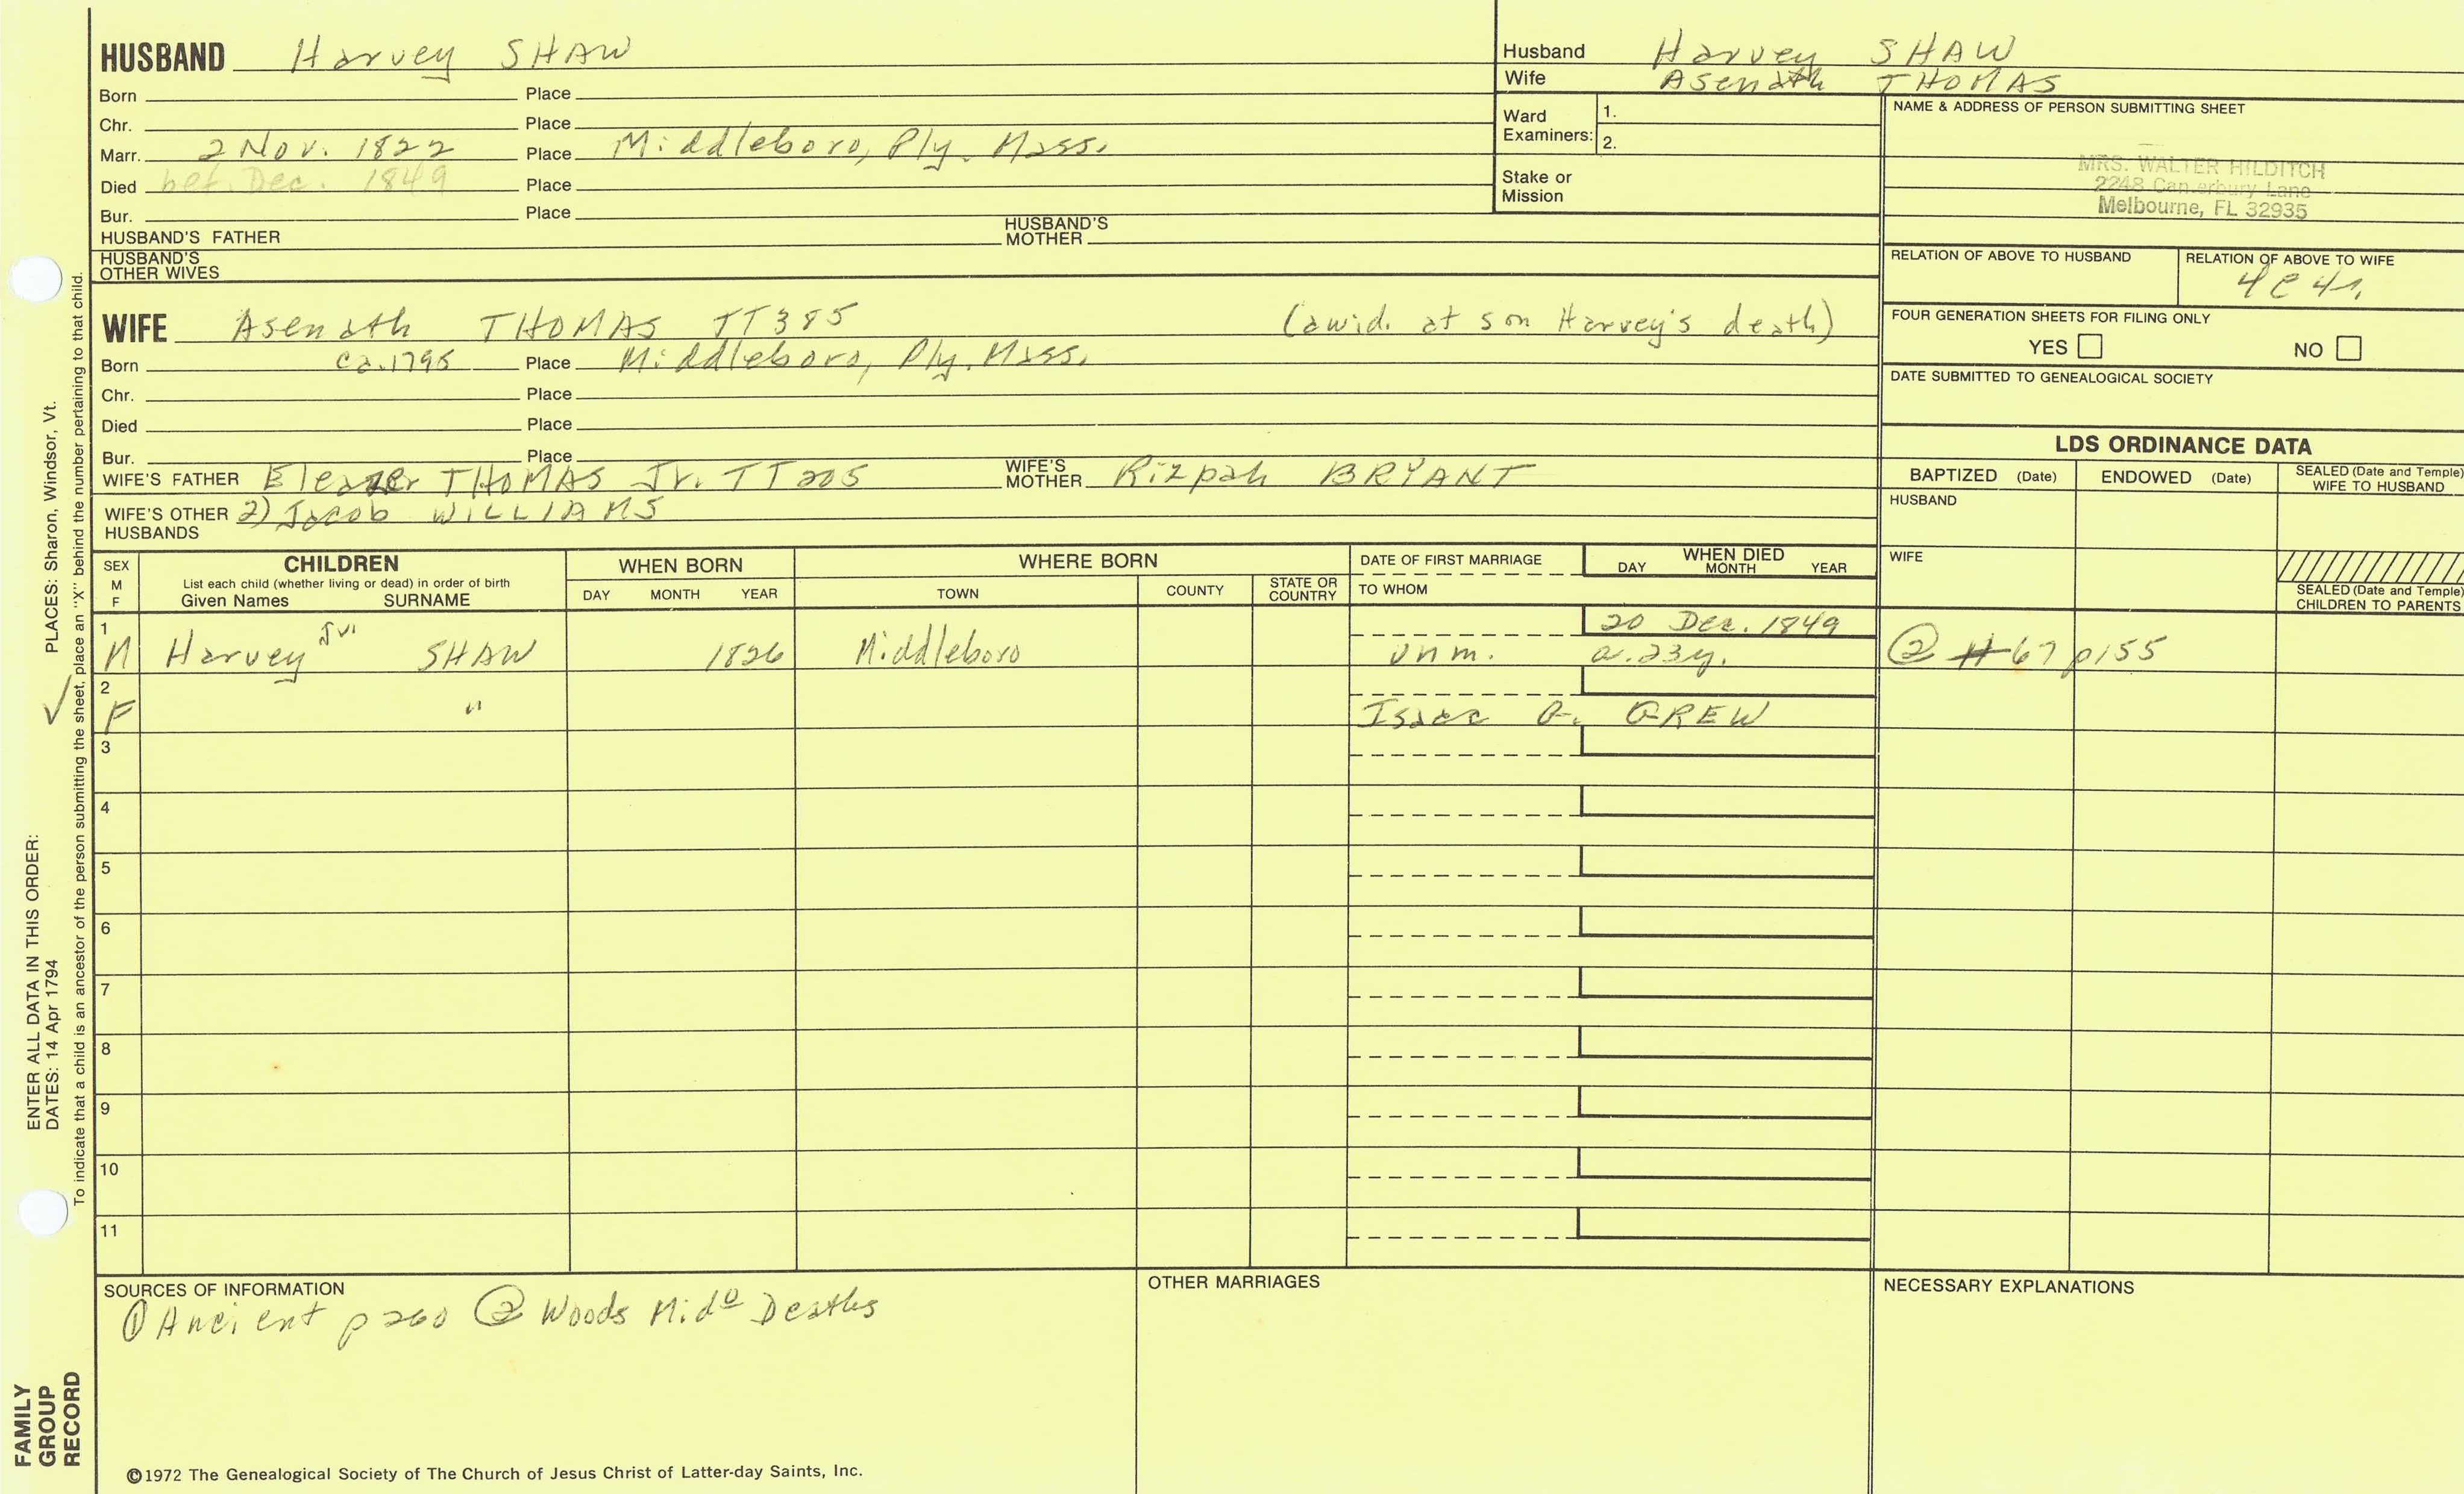 HUSBAND Harvey SHAW
Born Place
Chr. Place
Marr. 2 Nov. 1822 Place Middleboro, Ply. Mass.
Died bef. Dec. 1849 Place
Bur. Place
HUSBAND'S FATHER HUSBAND'S MOTHER
HUSBAND'S OTHER WIVES
Husband Harvey SHAW
Wife Asenath THOMAS
Ward Examiners: 1.
2.
Stake or Mission
NAME & ADDRESS OF PERSON SUBMITTING SHEET
MRS. WALTER HILDITCH
2248 Canterbury Lane
Melbourne, FL 32935
RELATION OF ABOVE TO HUSBAND RELATION OF ABOVE TO WIFE
4c4r.
WIFE Asenath THOMAS TT385 (a wid. at son Harvey's death)
Born ca. 1795 Place Middleboro, Ply. Mass.
Chr. Place
Died Place
Bur. Place
WIFE'S FATHER Eleazer THOMAS Jr. TT205 WIFE'S MOTHER Rizpah BRYANT
WIFE'S OTHER HUSBANDS 2) Jacob WILLIAMS
FOUR GENERATION SHEETS FOR FILING ONLY
YES NO
DATE SUBMITTED TO GENEALOGICAL SOCIETY
LDS ORDINANCE DATA
BAPTIZED (Date) ENDOWED (Date) SEALED (Date and Temple) WIFE TO HUSBAND
HUSBAND
WIFE
SEALED (Date and Temple) CHILDREN TO PARENTS
SEX M F
CHILDREN
List each child (whether living or dead) in order of birth
Given Names SURNAME
WHEN BORN
DAY MONTH YEAR
WHERE BORN
TOWN COUNTY STATE OR COUNTRY
DATE OF FIRST MARRIAGE
TO WHOM
WHEN DIED
DAY MONTH YEAR
1 20 Dec. 1849
M Harvey Jr. SHAW 1826 Middleboro unm. a. 23y. ② #67 p155
2
F " Isaac G. GREW
3
4
5
6
7
8
9
10
11
SOURCES OF INFORMATION
① Ancient p 260 ② Woods Midº Deaths
OTHER MARRIAGES
NECESSARY EXPLANATIONS
©1972 The Genealogical Society of The Church of Jesus Christ of Latter-day Saints, Inc.
FAMILY GROUP RECORD
ENTER ALL DATA IN THIS ORDER:
DATES: 14 Apr 1794 PLACES: Sharon, Windsor, Vt.
To indicate that a child is an ancestor of the person submitting the sheet, place an "X" behind the number pertaining to that child.